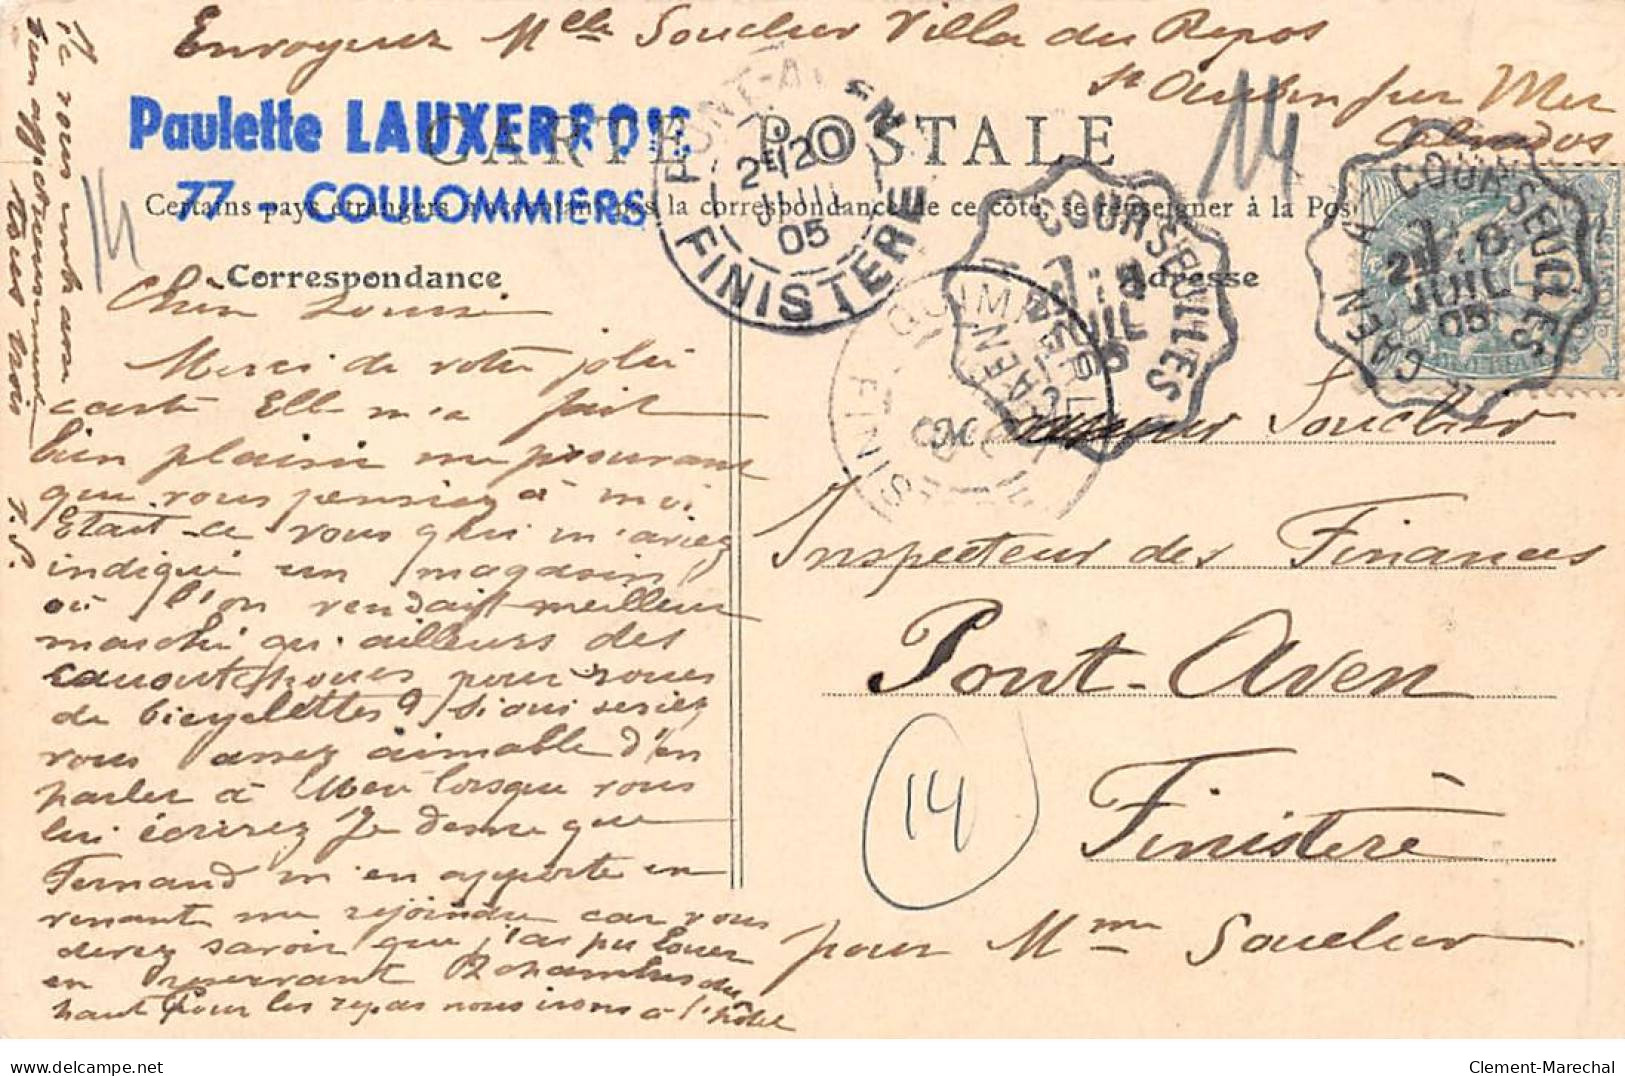 Envoyeur Mlle Souclier Villa du Repos
St Aubin sur Mer
Calvados
Paulette LAUXERROIS
77 - COULOMMIERS
CARTE POSTALE
Certains pays étrangers n'acceptant pas la correspondance de ce côté, se renseigner à la Pos
Correspondance
Adresse
PONT-AVEN
2E/20
JUIL
05
FINISTERE
COURSEULLES
JUIL
CAEN
QUIMPERLE
FINIS
COURSEULLES A CAEN
JUIL
05
14
14
14
Chère Louise
Merci de votre jolie
carte Elle m'a fait
bien plaisir me prouvant
que vous pensiez à moi
Etait-ce vous qui m'aviez
indiqué un magasin
où l'on vendait meilleur
marché qu'ailleurs des
caoutchoucs pour roues
de bicyclettes? Si oui seriez
vous assez aimable d'en
parler à lorsque vous
lui écrirez Je désire que
Fernand m'en apporte en
venant me rejoindre car vous
devez savoir que j'ai pu louer
en réservant 2 chambres du
haut Pour les repas nous irons à l'hôtel
Je vous embrasse
bien affectueusement
Monsieur Souclier
Inspecteur des Finances
Pont-Aven
Finistère
pour Mme Souclier
delcampe.net
Clement-Marechal